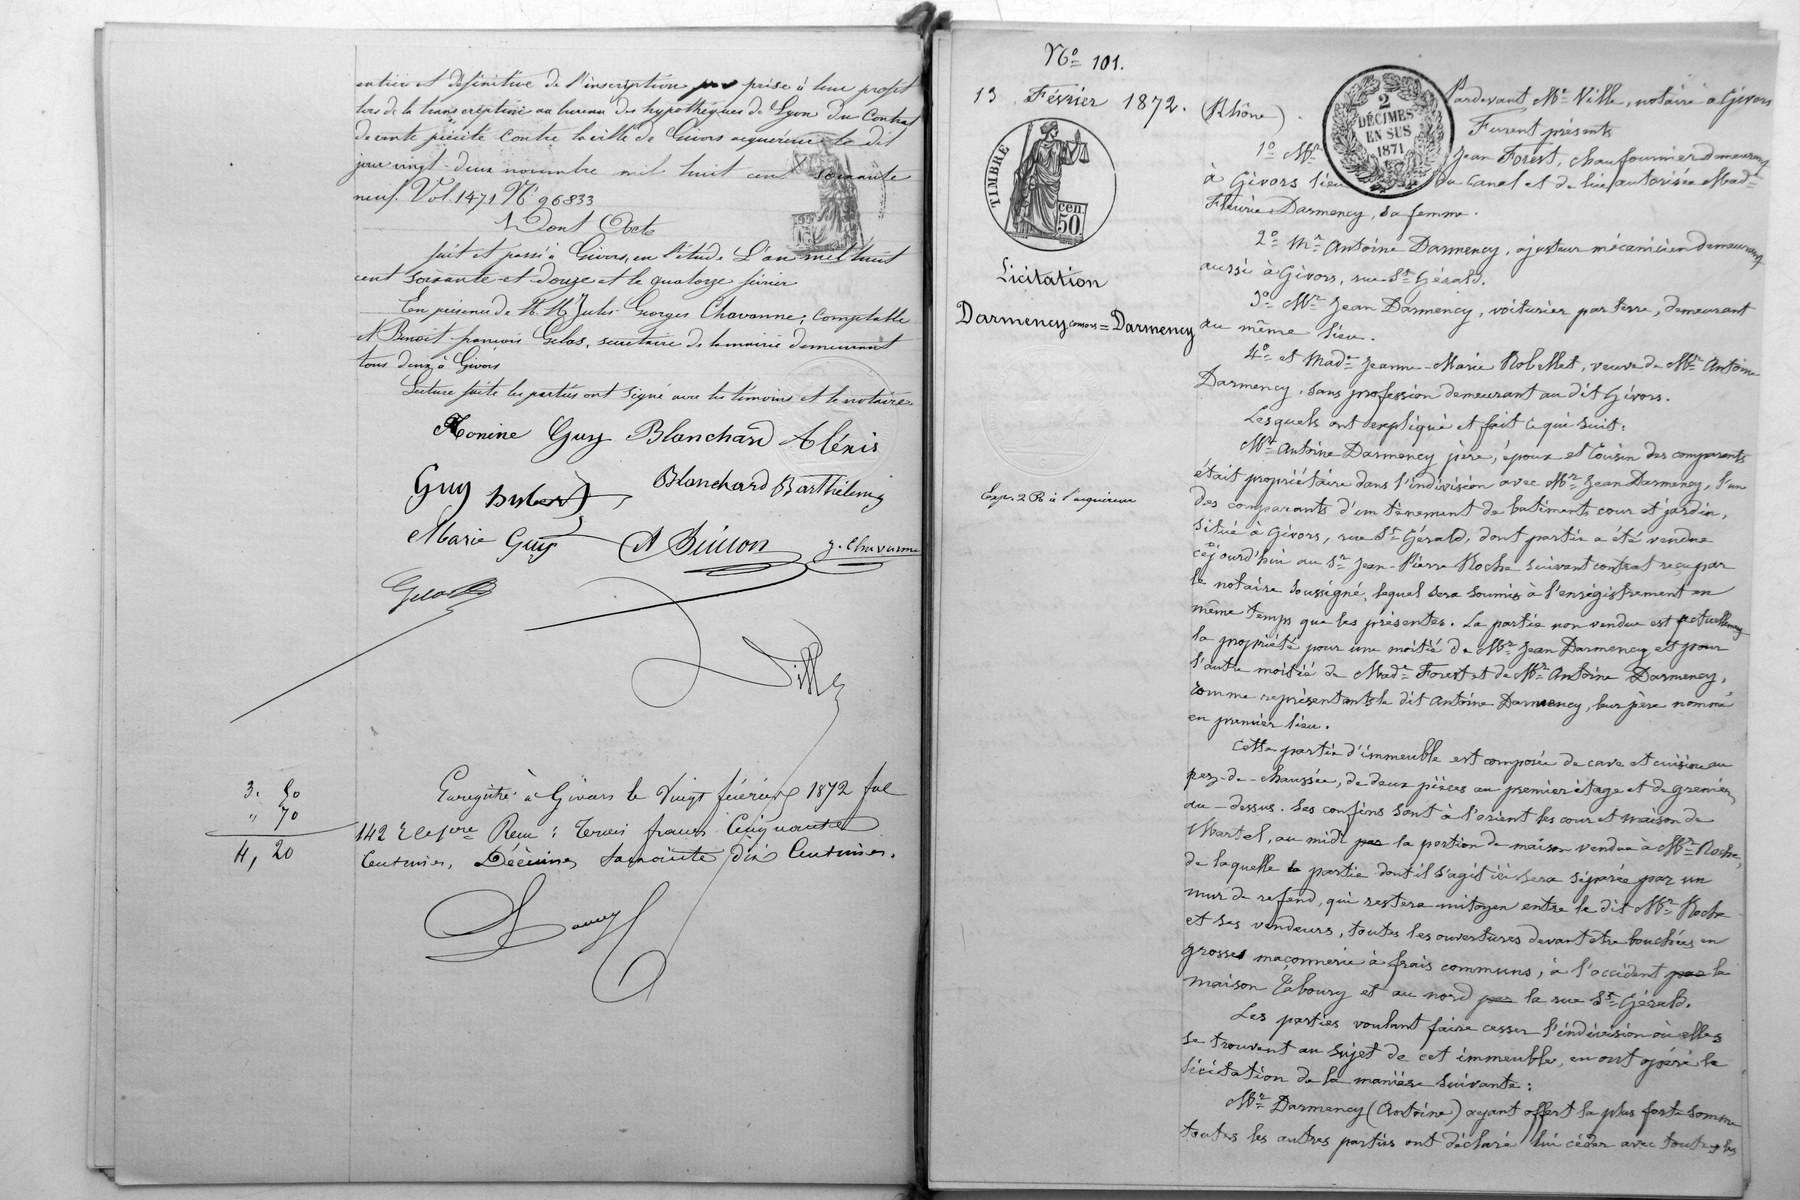 entière et définitive de l'inscription prise à leur profit
lors de la transcription au bureau des hypothèques de Lyon du Contrat
devant précité contre la ville de Givors acquéreur le dit
jour vingt-deux novembre mil huit cent soixante
neuf. Vol. 1471 N° 96833
Dont Acte
fait et passé à Givors, en l'étude L'an mil huit
cent soixante et douze et le quatorze février
En présence de M. M. Jules Georges Chavanne, Comptable
et Benoit françois Gelas, secrétaire de la mairie demeurant
tous deux à Givors
Lecture faite les parties ont signé avec les témoins et le notaire
Guy Blanchard Alexis
Guy Blanchard Barthélemy
Marie Guy J. Chavanne
Gelas
Ville
Enregistré à Givors le Vingt février 1872 fol
142 Rcu : Trois francs Cinquante
Centimes, Décimes soixante dix Centimes.
3. 50
" 70
4, 20
N° 101.
13 Février 1872.
TIMBRE
cen.
50
Licitation
Darmency consors = Darmency
Exp. 2 R. à l'acquéreur
2
DÉCIMES
EN SUS
1871
Pardevant Me Ville, notaire à Givors
(Rhône).
Furent présents
1° Mr Jean Forest, chaufournier demeurant
à Givors lieu du Canal et de lui autorisée Made
Fleurie Darmency, sa femme.
2° Mr Antoine Darmency, ajusteur mécanicien demeurant
aussi à Givors, rue St Gérald.
3° Mr Jean Darmency, voiturier par terre, demeurant
au même lieu.
4° et Made Jeanne-Marie Robellet, veuve de Mr Antoine
Darmency, sans profession demeurant au dit Givors.
Lesquels ont expliqué et fait ce qui suit:
Mr Antoine Darmency père, époux et Cousin des comparants
était propriétaire dans l'indivision avec Mr Jean Darmency, l'un
des comparants d'un tènement de batiments cour et jardin,
situé à Givors, rue St Gérald, dont partie a été vendue
cejourd'hui au Sr Jean-Pierre Roche suivant contrat reçu par
le notaire soussigné, lequel sera soumis à l'enrégistrement en
même temps que les présentes. La partie non vendue est actuellement
la propriété pour une moitié de Mr Jean Darmency et pour
l'autre moitié de Made Forest et de Mr Antoine Darmency,
comme représentants le dit Antoine Darmency, leur père nommé
en premier lieu.
Cette partie d'immeuble est composée de cave et cuisine au
rez-de-chaussée, de deux pièces au premier étage et de grenier
au-dessus. Ses confins sont à l'orient les cour et maison de
Martel, au midi par la portion de maison vendue à Mr Roche,
de laquelle la partie dont il s'agit ici sera séparée par un
mur de refend, qui restera mitoyen entre le dit Mr Roche
et ses vendeurs, toutes les ouvertures devant être bouchées en
grosse maçonnerie à frais communs, à l'occident par la
maison Taboury et au nord par la rue St Gérald.
Les parties voulant faire cesser l'indivision où elles
se trouvent au sujet de cet immeuble, en ont opéré la
licitation de la manière suivante :
Mr Darmency (Antoine) ayant offert la plus forte somme
toutes les autres parties ont déclaré lui céder avec toutes les